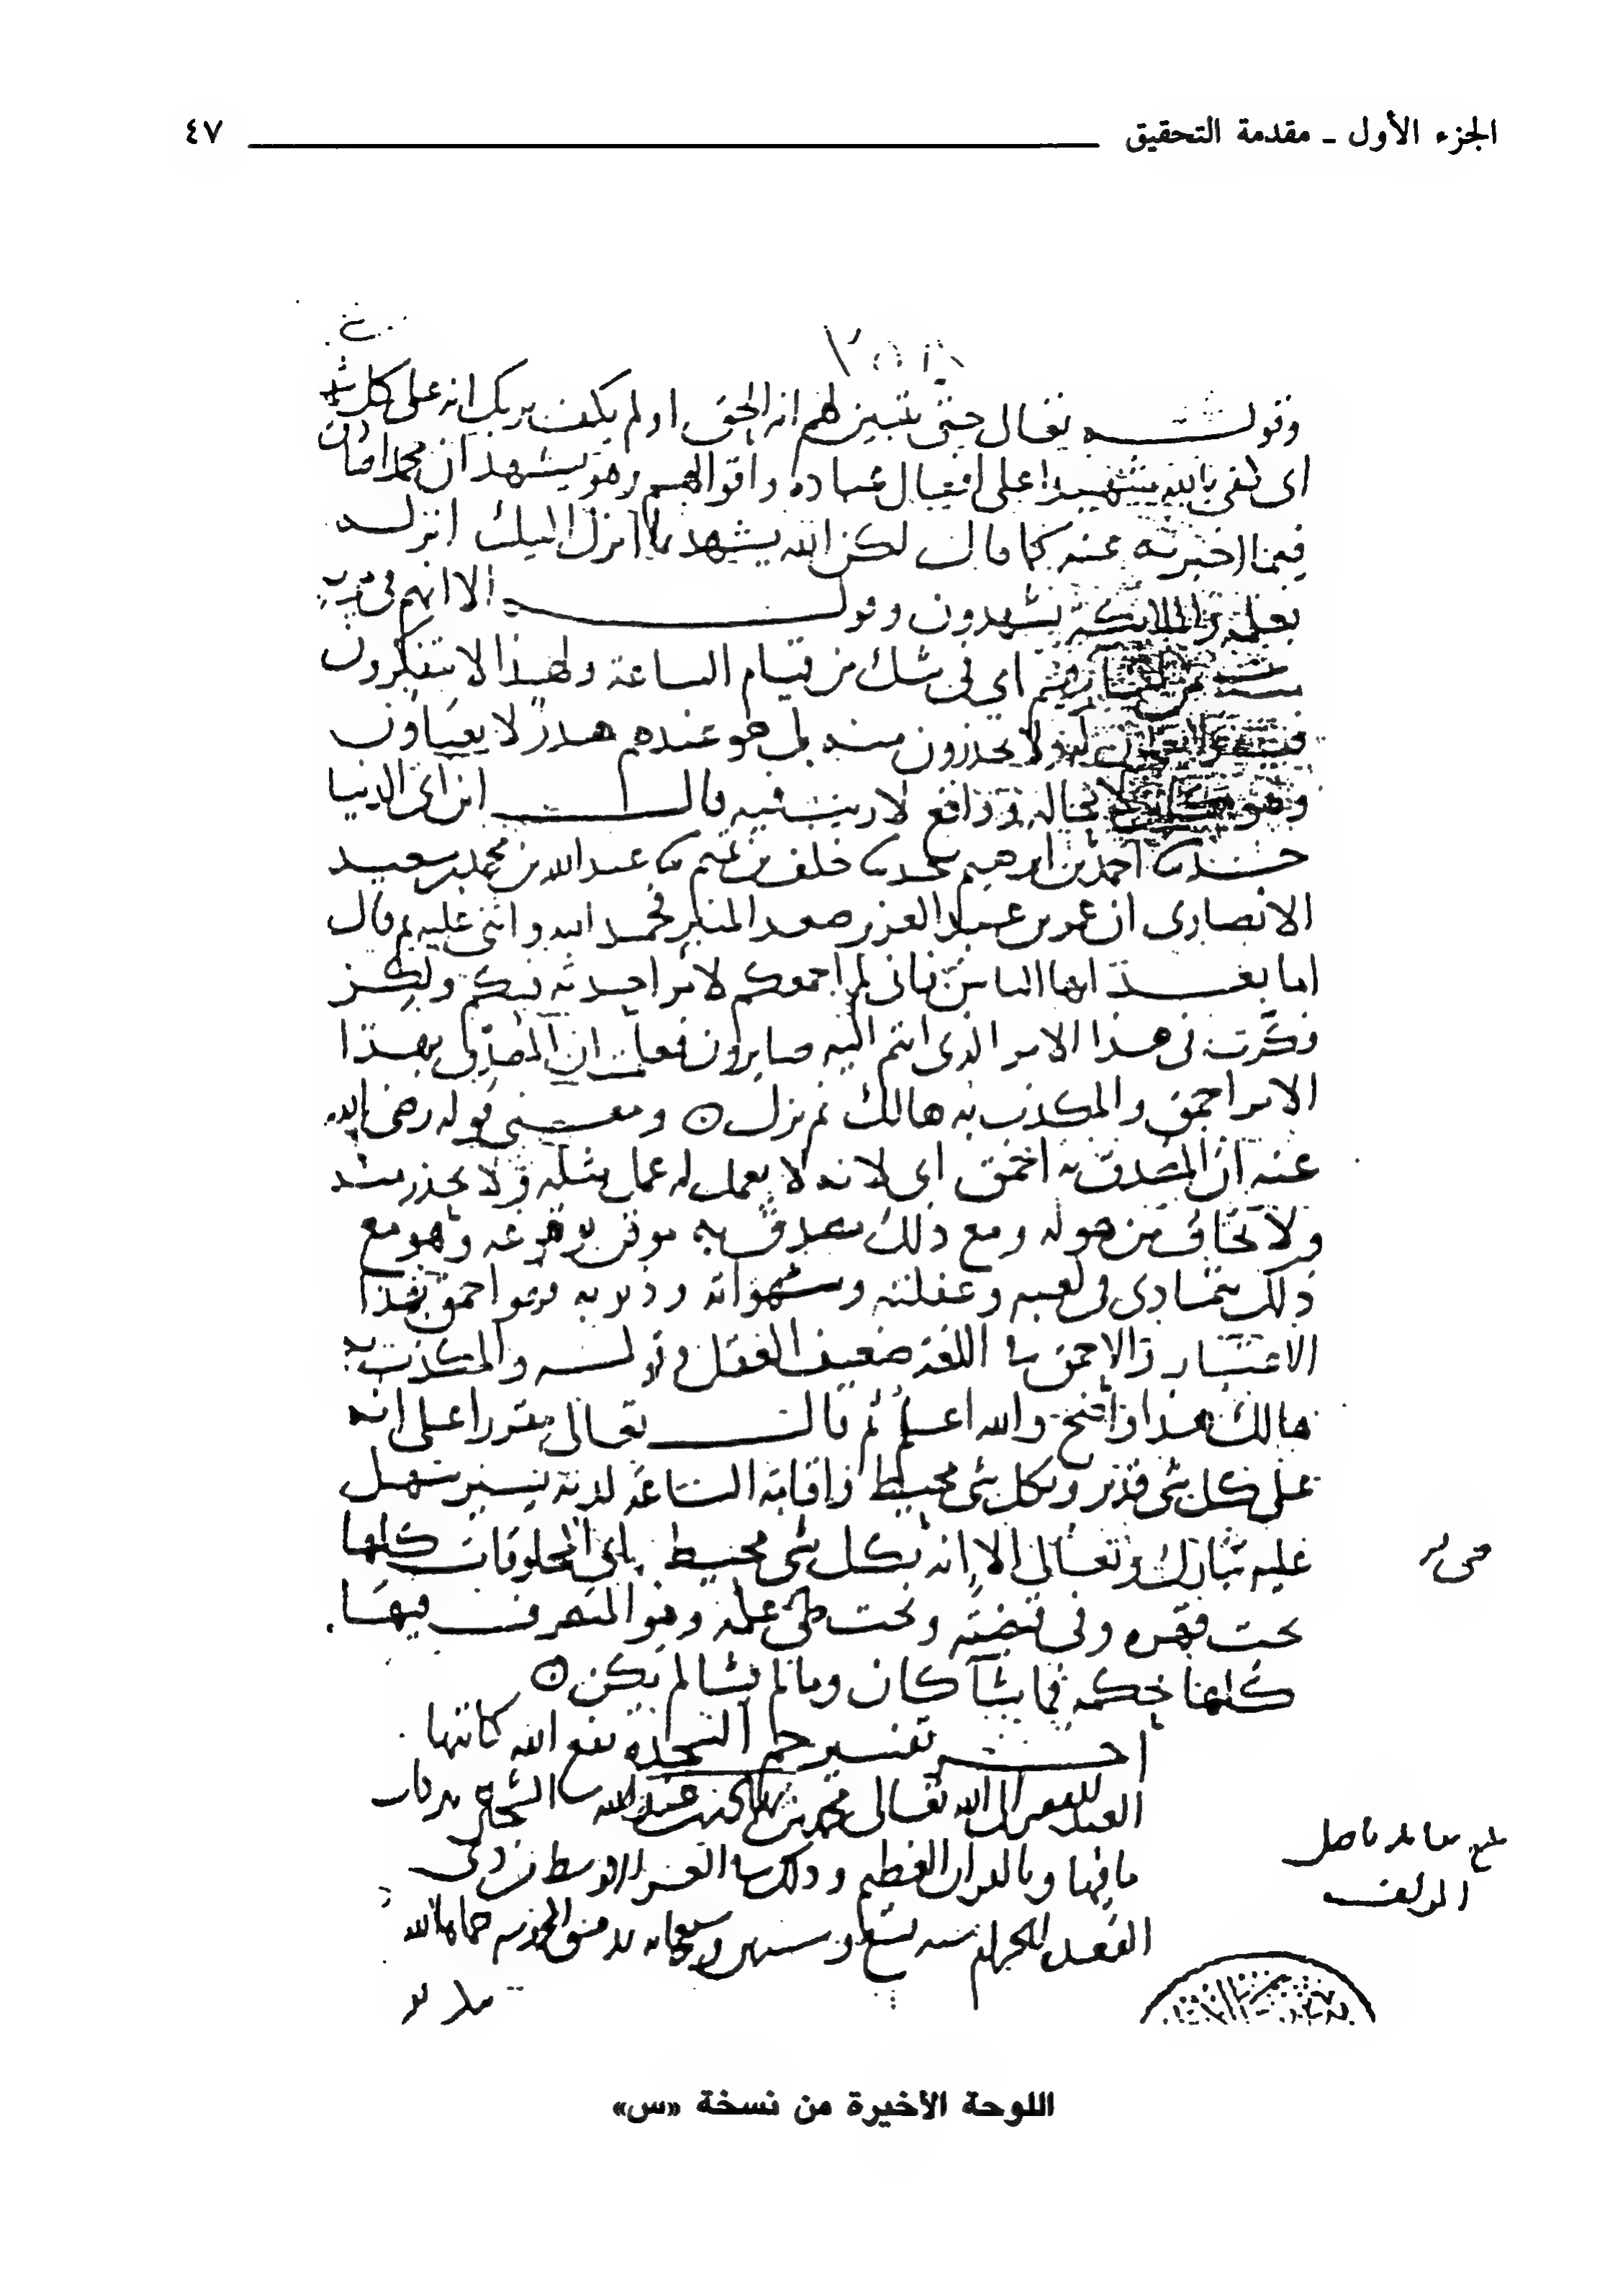 الجزء الأول ـ مقدمة التحقيق ٤٧
وقولـــه تعالى حتى يتبين لهم انه الحق اولم يكف بربك انه على كل شى
اى كفى بالله شهيدا على افعال عباده واقوالهم وهو يشهد ان محمدا صادق
فيما اخبر به عنه كما قال لكن الله يشهد بما انزل اليك انزلـه
بعلمه والملائكة يشهدون وقولـــه الا انهم فى مرية
من لقاء ربهم اى فى شك من قيام الساعة ولهذا لا يتفكرون
فيه ولا يعملون له ولا يحذرون منه بل هو عندهم هدر لا يعباون به
وهو كائن لا محالة وواقع لا ريب فيه قالـــ ابن ابى الدنيا
حدثنا احمد بن ابرهيم حدثنا خلف بن تميم ثنا عبد الله بن محمد بن سعيد
الانصارى ان عمر بن عبد العزيز صعد المنبر فحمد الله واثنى عليه ثم قال
اما بعـــد ايها الناس فانى لم اجمعكم لامر احدثه فيكم ولكن
فكرت فى هذا الامر الذى انتم اليه صايرون فعلمت ان المصدق بهذا
الامر احمق والمكذب به هالك ثم نزل ومعنى قوله رضى الله
عنه ان المصدق به احمق اى لانه لا يعمل له عمل مثله ولا يحذر منه
ولا يخاف من هوله ومع ذلك مصدق به موقن بوقوعه وهو مع
ذلك يتمادى فى لعبه وغفلته وشهواته وذنوبه فهو احمق بهذا
الاعتبار والاحمق فى اللغة ضعيف العقل وقولـــه والمكذب به
هالك هذا واضح والله اعلم ثم قالـــ تعالى مقررا على انه
على كل شى قدير وبكل شى محيط واقامة الساعة لديه يسير سهل
عليه تبارك وتعالى الا انه بكل شى محيط اى المخلوقات كلها
تحت قهره وفى قبضته وتحت طى علمه وهو المتصرف فيها
كلها بحكمه فما شاء كان وما لم يشا لم يكن
اخـــر تفسير حم السجدة نفع الله كاتبها
العبد الفقير الى الله تعالى محمد بن
ما فيها وبالقران العظيم وذلك فى العشر الاوسط من ذى
القعدة الحرام سنه تسع وسبعمايه بدمشق المحروسه حماها الله
المولف
اللوحة الأخيرة من نسخة «س»